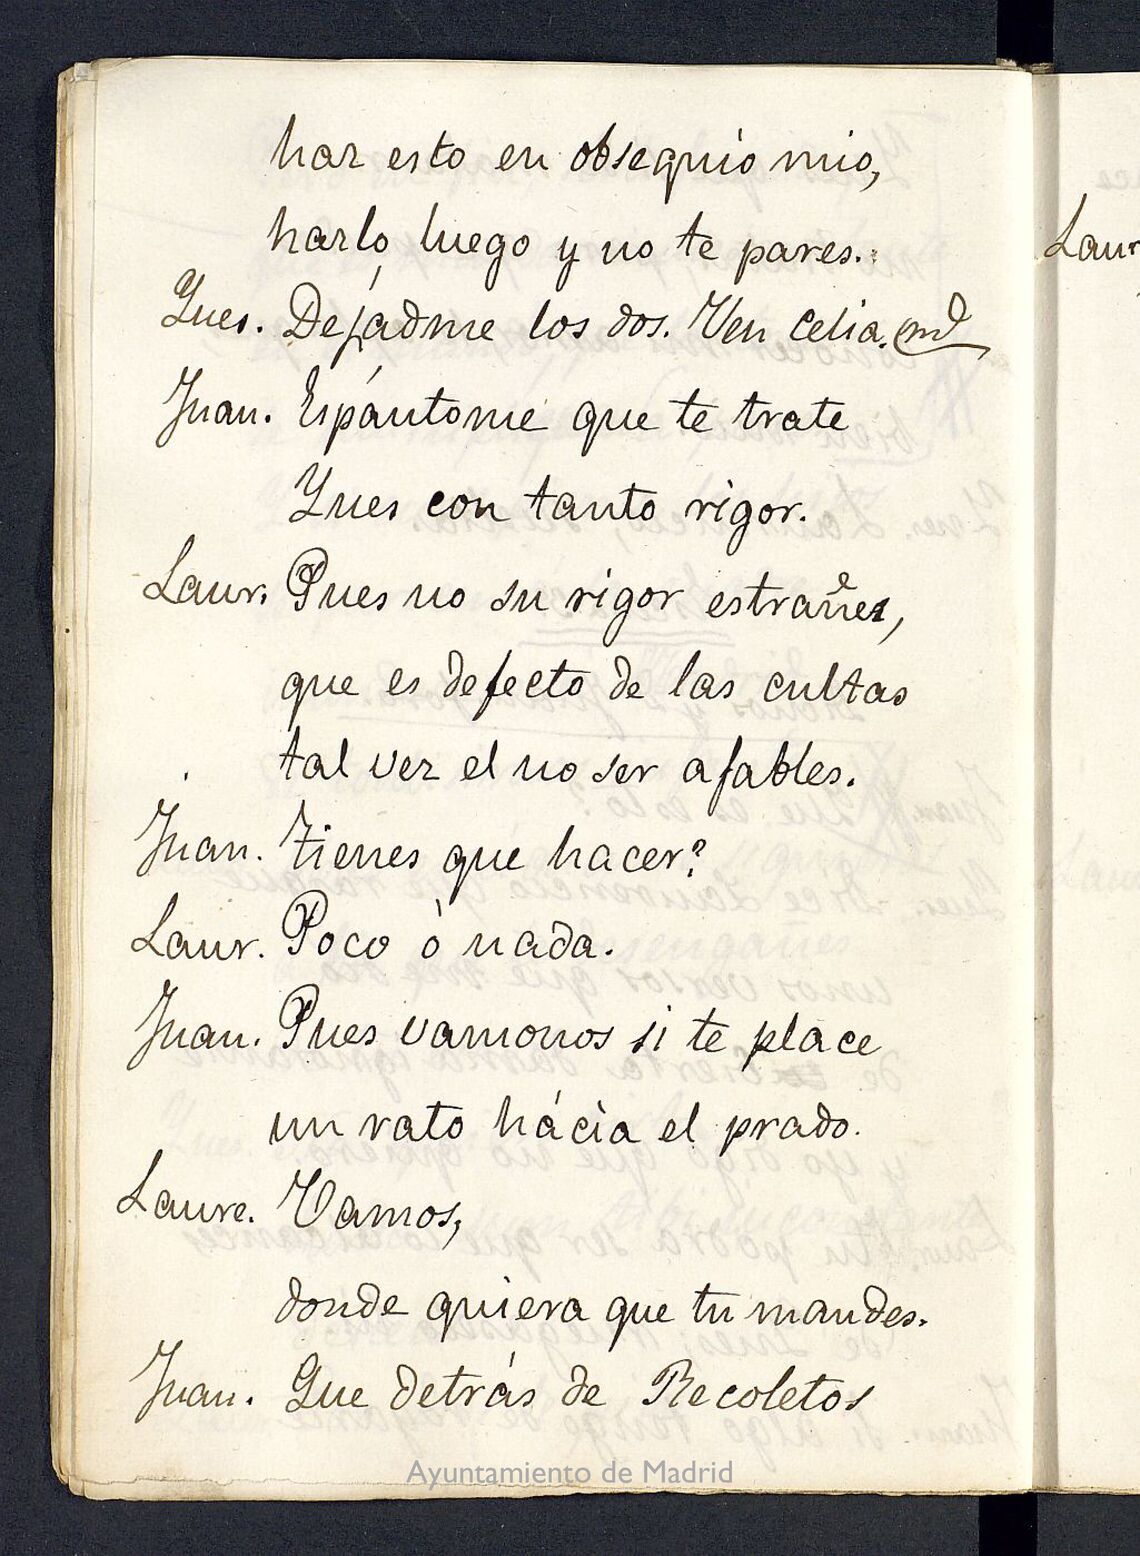 haz esto en obsequio mio,
hazlo luego y no te pares.
Ynes. Dejádme los dos. Ven Celia.
Juan. Espántome que te trate
Ynes con tanto rigor.
Laur. Pues no su rigor estrañes,
que es defecto de las cultas
tal vez el no ser afables.
Juan. Tienes que hacer?
Laur. Poco ó nada.
Juan. Pues vamonos si te place
un rato hácia el prado.
Laure. Vamos,
donde quiera que tu mandes.
Juan. Que detrás de Recoletos
Laur
Ayuntamiento de Madrid